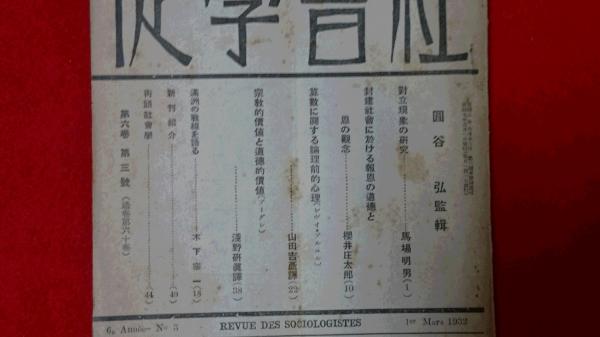 社會學徒
圓谷 弘監輯
對立現象の研究……馬場明男(1)
封建社會に於ける報恩の道德と
恩の觀念……櫻井庄太郎(10)
算數に關する論理前的心理(レヴィ・ブルュル)
……山田吉彥譯(22)
宗敎的價値と道德的價値(ブーグレ)
……淺野硏眞譯(38)
滿洲の戰線を語る……木下 一(18)
新刊紹介……(49)
街頭社會學……(44)
第六卷 第三號(通卷第六十卷)
6e Année— No 3 REVUE DES SOCIOLOGISTES 1er Mars 1932